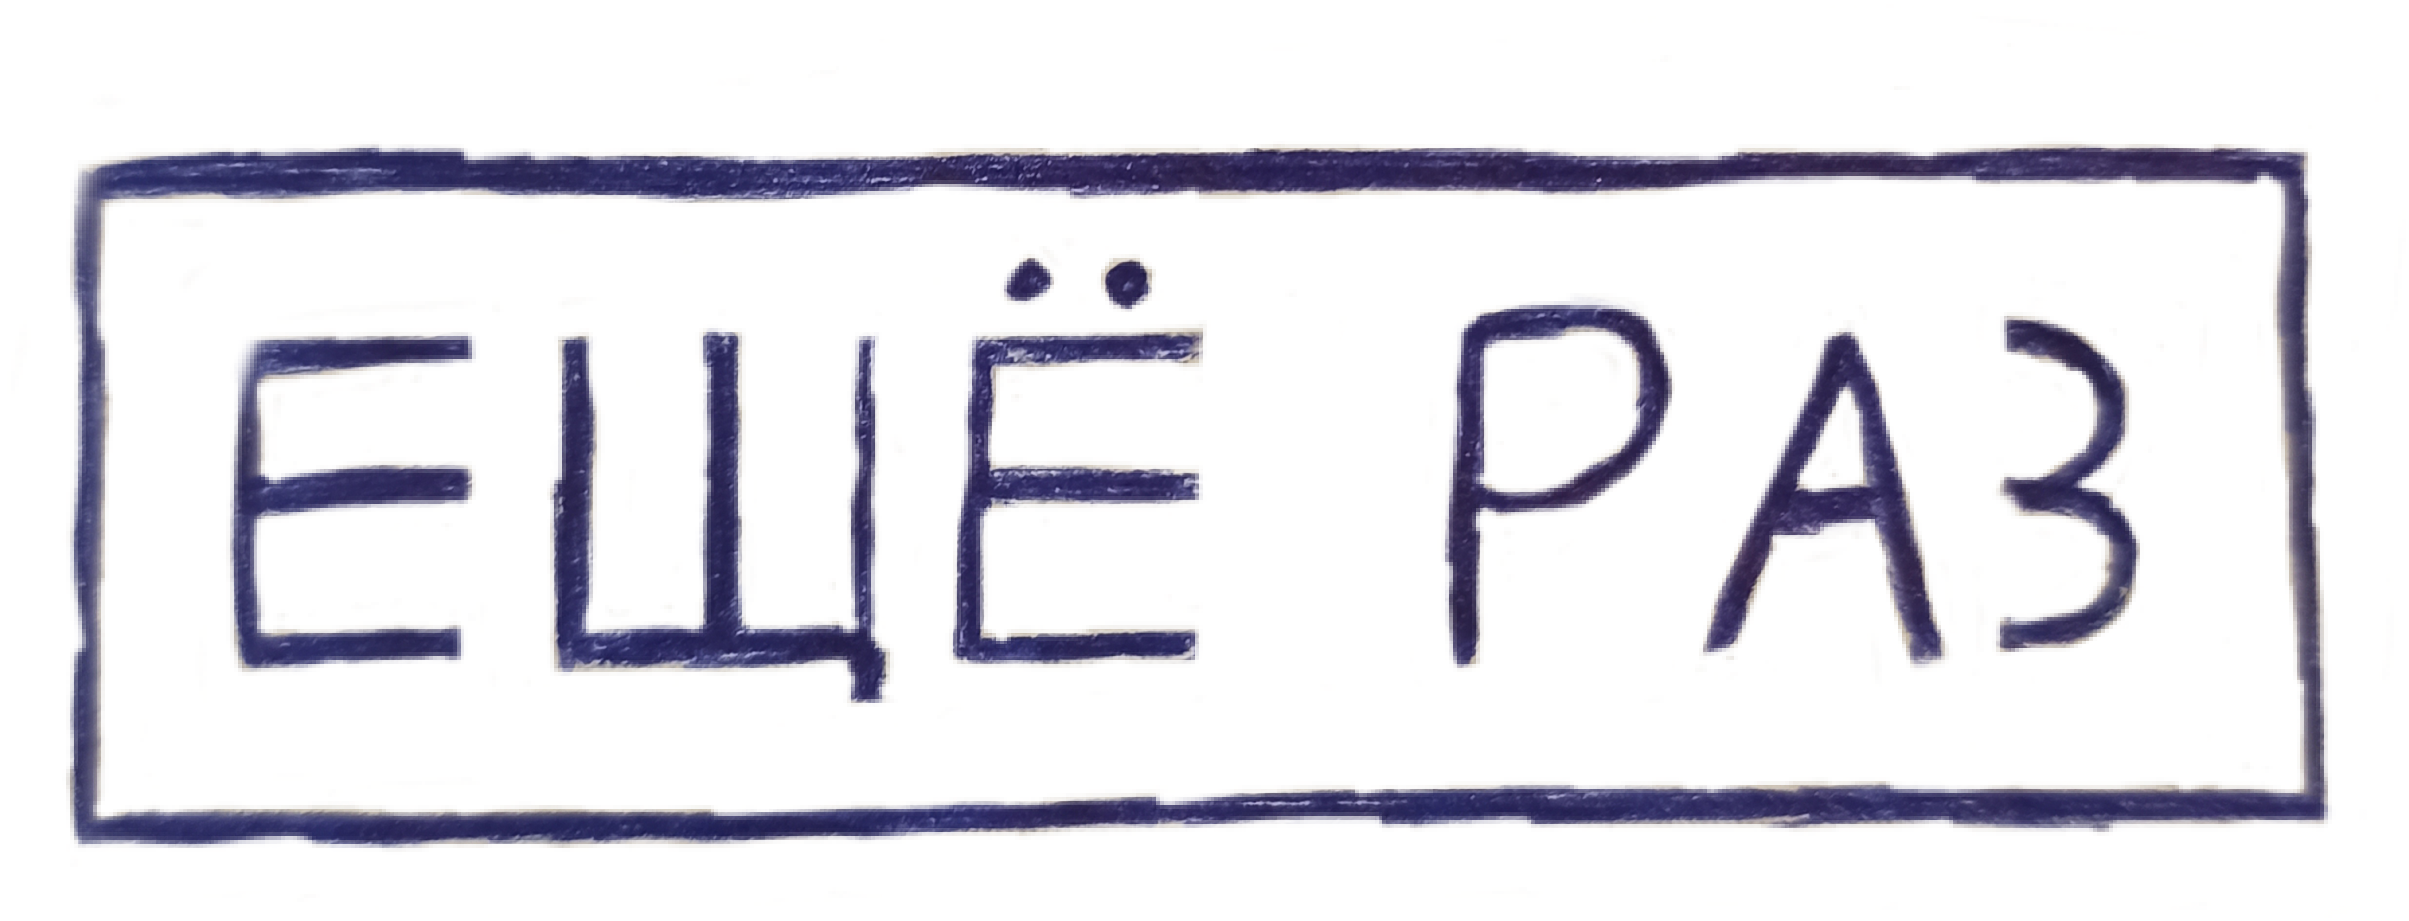 ЕЩЁ РАЗ